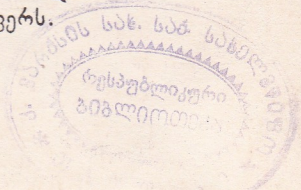 ვერს.
კ. მარქსის სახ. საქ. სახელმწიფო
რესპუბლიკური
ბიბლიოთეკა